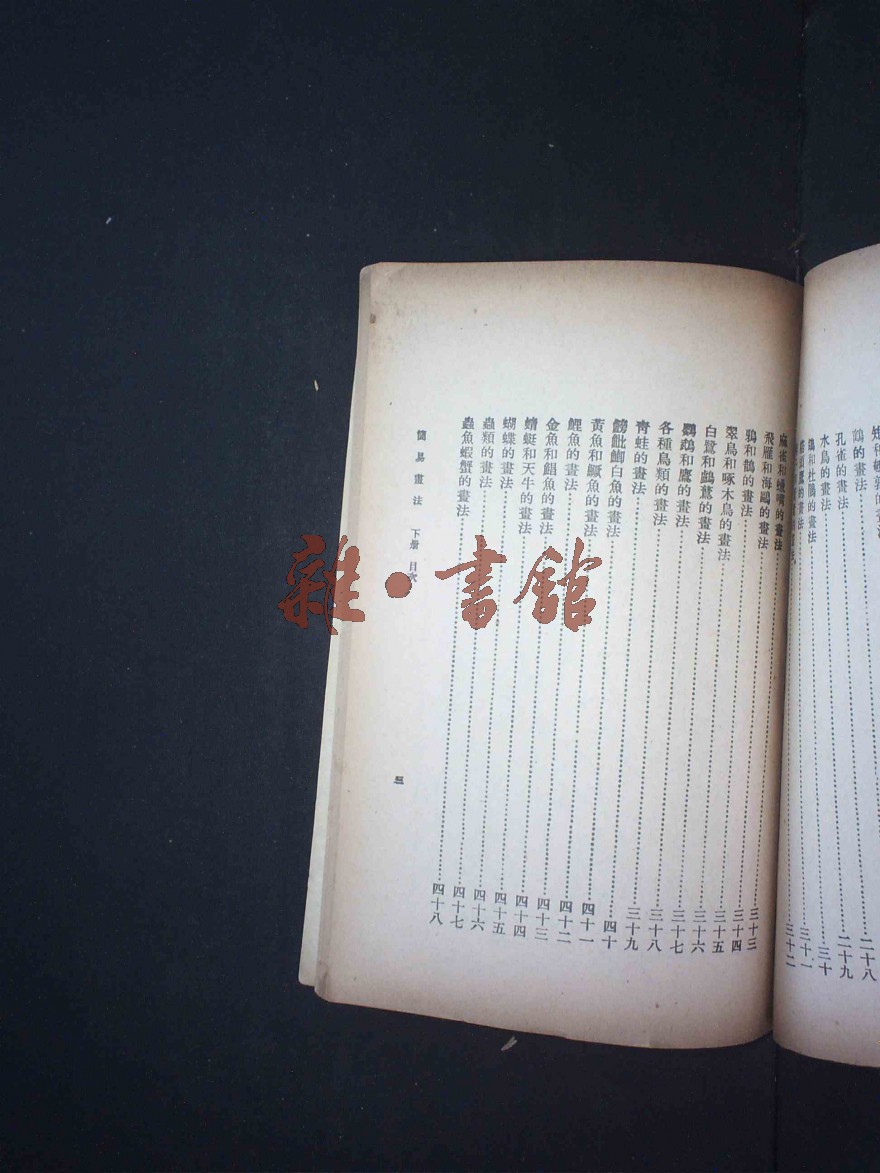 的畫法
鴿的畫法
孔雀的畫法 二十八
水鳥的畫法 二十九
和杜鵑的畫法 三十
的畫法 三十一
三十二
麻雀和 的畫法 三十三
飛雁和海鷗的畫法 三十四
鴉和鵲的畫法 三十五
翠鳥和啄木鳥的畫法 三十六
白鷺和鸕鶿的畫法 三十七
鸚鵡和鷹的畫法 三十八
各種鳥類的畫法 三十九
青蛙的畫法 四十
鰟鮍鯽白魚的畫法 四十一
黃魚和鱖魚的畫法 四十二
鯉魚的畫法 四十三
金魚和鯧魚的畫法 四十四
蜻蜓和天牛的畫法 四十五
蝴蝶的畫法 四十六
蟲類的畫法 四十七
蟲魚蝦蟹的畫法 四十八
簡易畫法 下册 目次 三
雜·書館